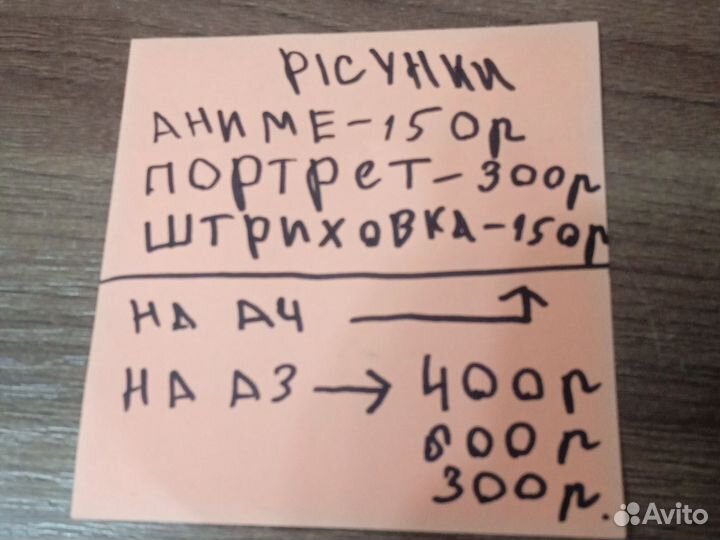 РІСУНКИ
АНИМЕ-150р
ПОРТРЕТ-300р
ШТРИХОВКА-150р
НА А4
НА А3 → 400р
600р
300р.
Avito